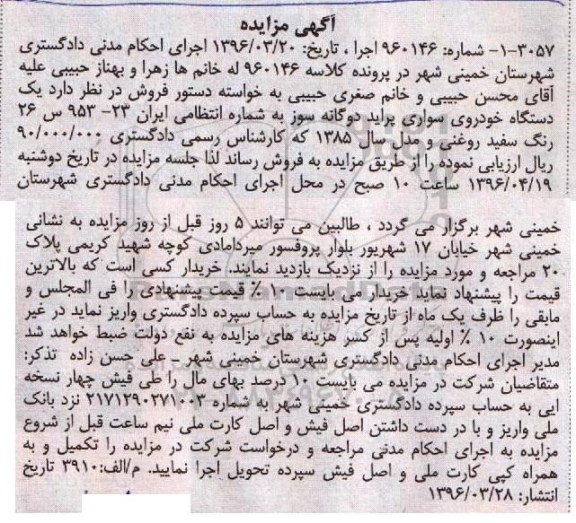 آگهی مزایده
۱-۳۰۵۷- شماره: ۹۶۰۱۴۶ اجرا ، تاریخ: ۱۳۹۶/۰۳/۲۰ اجرای احکام مدنی دادگستری
شهرستان خمینی شهر در پرونده کلاسه ۹۶۰۱۴۶ له خانم ها زهرا و بهناز حبیبی علیه
آقای محسن حبیبی و خانم صغری حبیبی به خواسته دستور فروش در نظر دارد یک
دستگاه خودروی سواری پراید دوگانه سوز به شماره انتظامی ایران ۲۳- ۹۵۳ س ۲۶
رنگ سفید روغنی و مدل سال ۱۳۸۵ که کارشناس رسمی دادگستری ۹۰/۰۰۰/۰۰۰
ریال ارزیابی نموده را از طریق مزایده به فروش رساند لذا جلسه مزایده در تاریخ دوشنبه
۱۳۹۶/۰۴/۱۹ ساعت ۱۰ صبح در محل اجرای احکام مدنی دادگستری شهرستان
خمینی شهر برگزار می گردد ، طالبین می توانند ۵ روز قبل از روز مزایده به نشانی
خمینی شهر خیابان ۱۷ شهریور بلوار پروفسور میردامادی کوچه شهید کریمی پلاک
۲۰ مراجعه و مورد مزایده را از نزدیک بازدید نمایند. خریدار کسی است که بالاترین
قیمت را پیشنهاد نماید خریدار می بایست ۱۰ ٪ قیمت پیشنهادی را فی المجلس و
مابقی را ظرف یک ماه از تاریخ مزایده به حساب سپرده دادگستری واریز نماید در غیر
اینصورت ۱۰ ٪ اولیه پس از کسر هزینه های مزایده به نفع دولت ضبط خواهد شد
مدیر اجرای احکام مدنی دادگستری شهرستان خمینی شهر ـ علی حسن زاده تذکر:
متقاضیان شرکت در مزایده می بایست ۱۰ درصد بهای مال را طی فیش چهار نسخه
ایی به حساب سپرده دادگستری خمینی شهر به شماره ۲۱۷۱۲۹۰۲۷۱۰۰۳ نزد بانک
ملی واریز و با در دست داشتن اصل فیش و اصل کارت ملی نیم ساعت قبل از شروع
مزایده به اجرای احکام مدنی مراجعه و درخواست شرکت در مزایده را تکمیل و به
همراه کپی کارت ملی و اصل فیش سپرده تحویل اجرا نمایید. م/الف:۳۹۱۰ تاریخ
انتشار: ۱۳۹۶/۰۳/۲۸